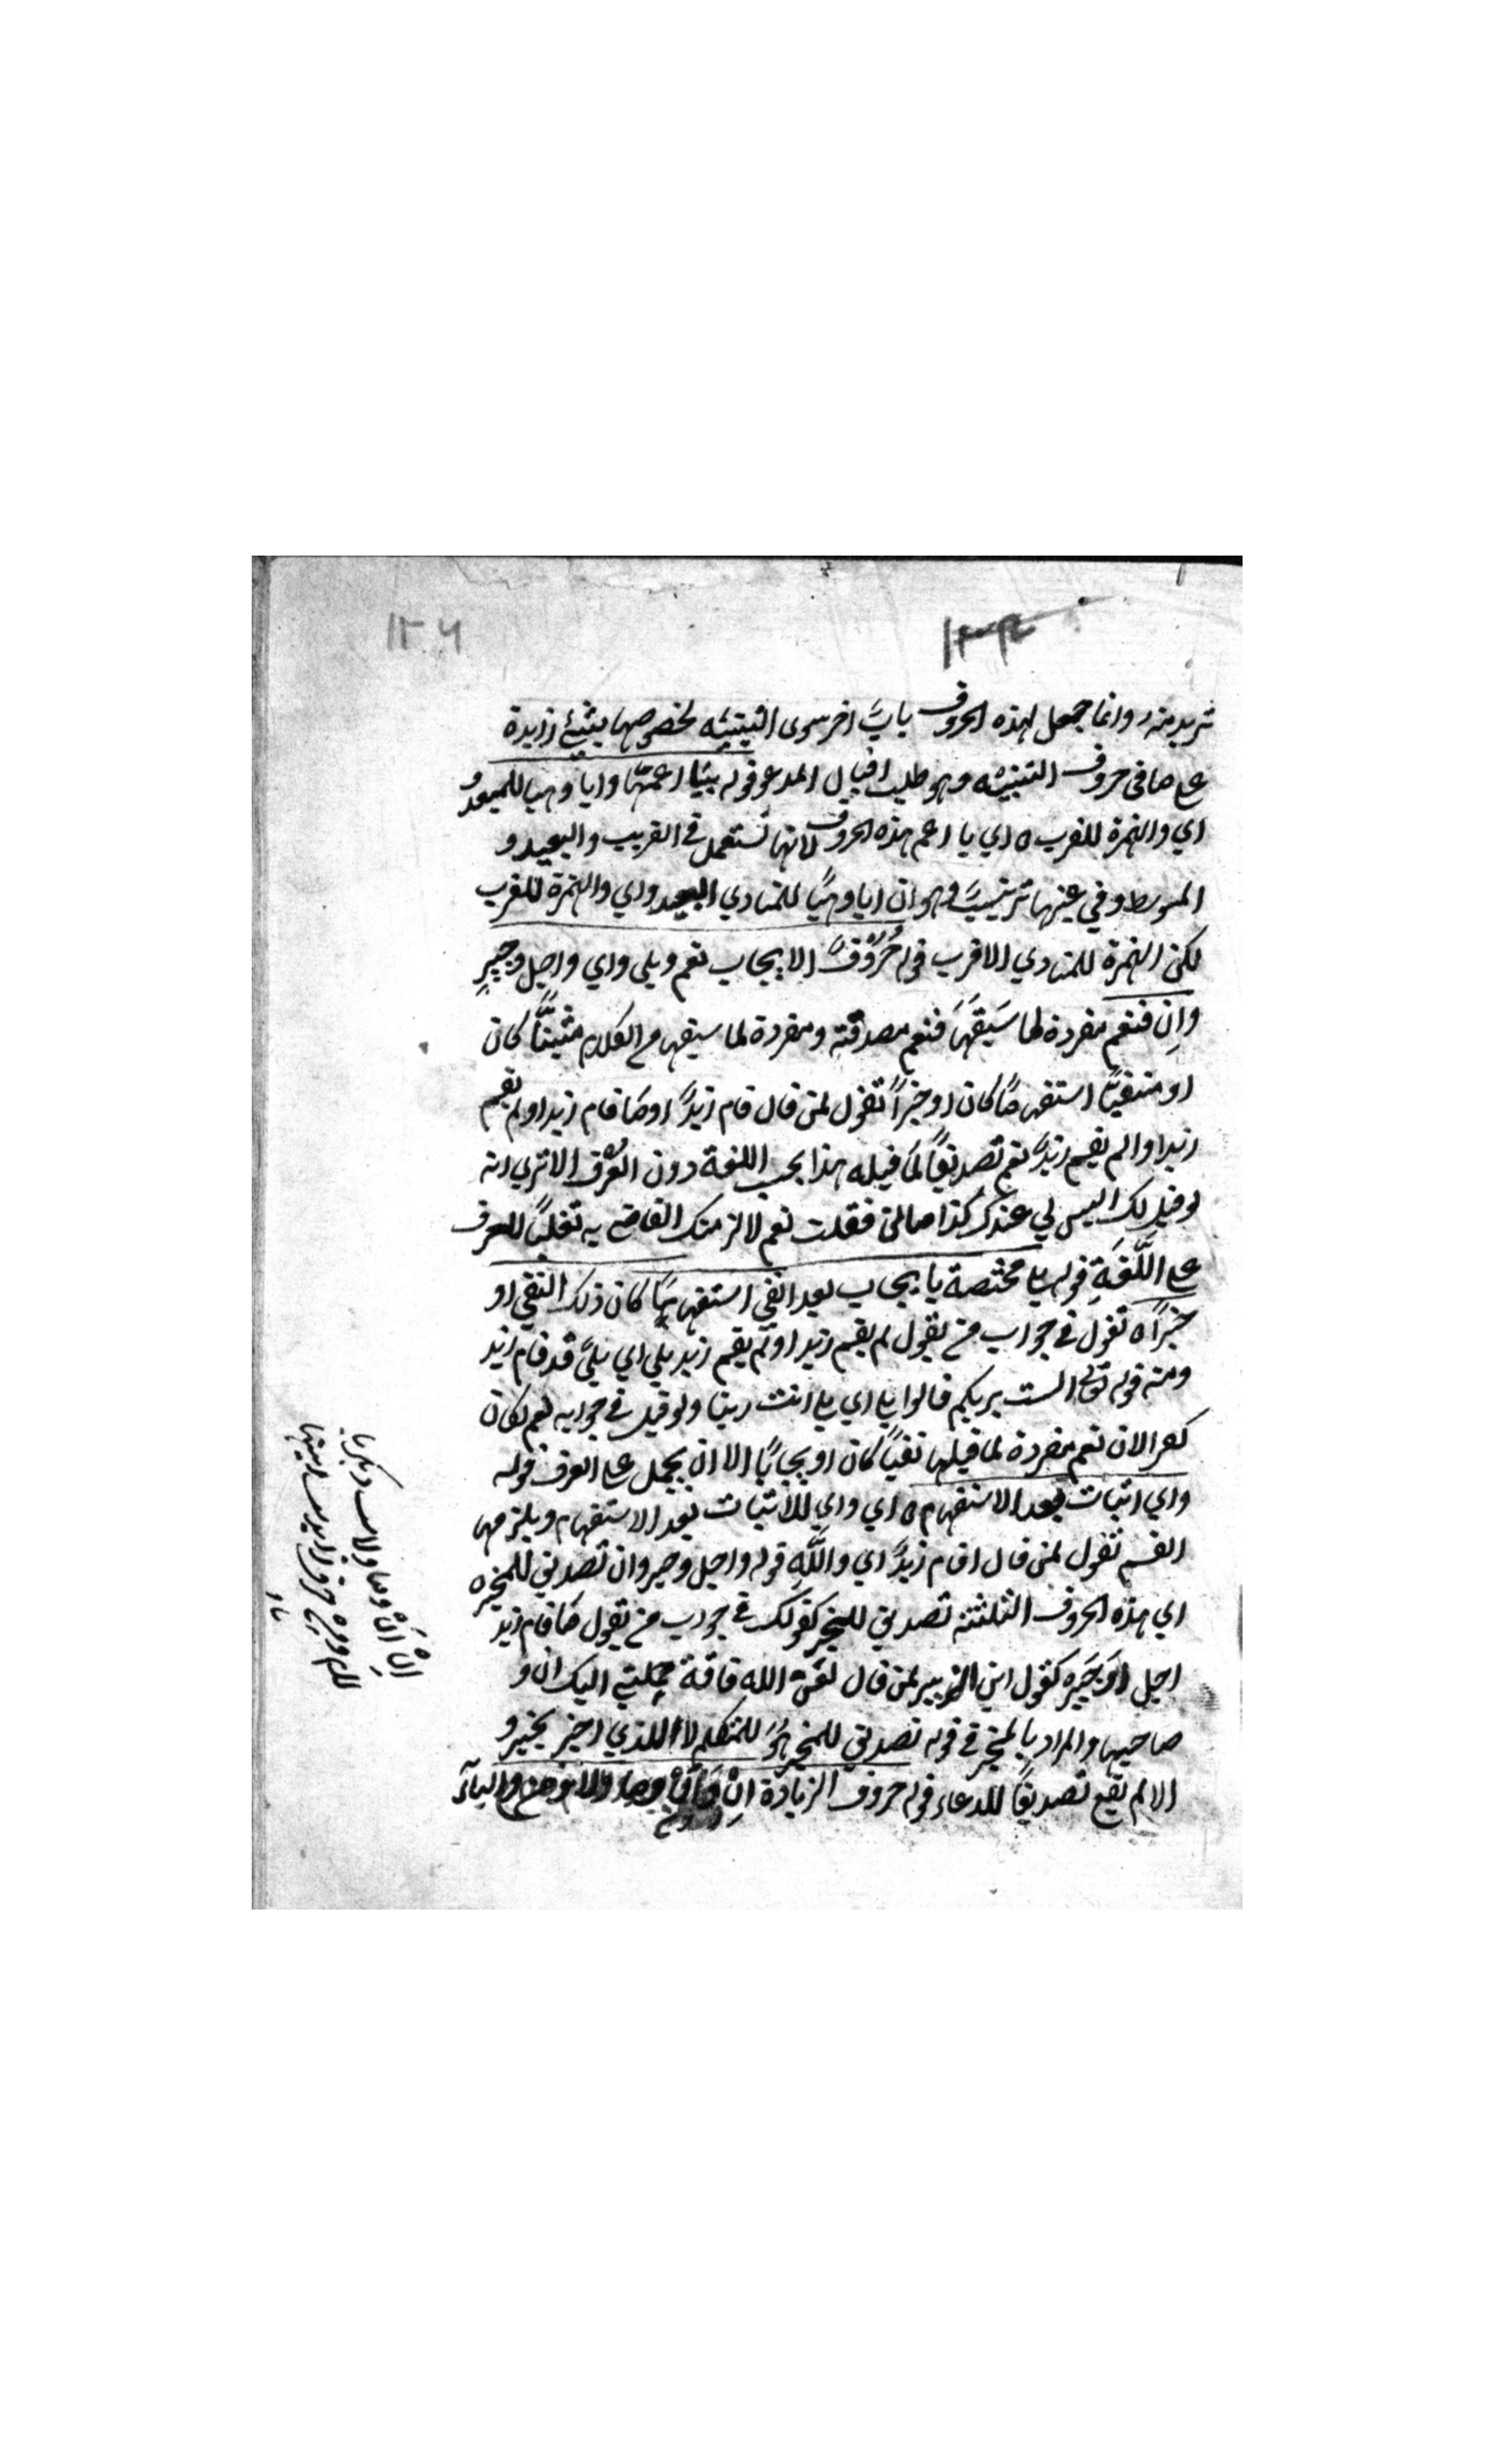 ١٢٦
تريد منه وانما جعل لهذه الحروف بابًا اخر سوى التنبيه لخصوصها بشئ زايدة
على ما في حروف التنبيه وهو طلب اقبال المدعو قوله بيا اعمها وايا وهيا للبعيد و
اي والهمزة للقريب ه اي يا اعم هذه الحروف لانها تستعمل في القريب والبعيد و
المتوسط وفي غيرها ترتيب وهو ان ايا وهيا للمنادي البعيد واي والهمزة للقريب
لكن الهمزة للمنادي الاقرب قوله حُرُوْفُ الايجاب نعم وبلى واي واجل وجيرِ
وانِ فنعم مقررة لما سَبَقَهَا فنعم مصدقة ومقررة لما سبقها من الكلام مثبتًا كان
او منفيًا استفهامًا كان او خبرًا تقول لمن قال قام زيدٌ او ما قام زيد او لم يقم
زيد او الم يقم زيدٌ نعم تصديقًا لما قبله هذا بحسب اللغة دون العُرْف الا تري انه
لو قيل لك اليس لي عندك كذا مالًا فقلت نعم لالزمتك القاضي به تغليبًا للعرف
على اللُّغَةِ قوله بلى مختصة بايجاب بعد النفي استفهامًا كان ذلك النفي او
خبرًا ه تقول في جواب من يقول لم يقم زيد او الم يقم زيد بلى اي بلى قد قام زيد
ومنه قوله تعالى الست بربكم قالوا بلى اي بلى انت ربنا ولو قيل في جوابه نعم لكان
كفرا لان نعم مقررة لما قبلها نفيًا كان او ايجابًا الا ان يحمل على العرف قوله
واي اثبات بعد الاستفهام ه اي واي للاثبات بعد الاستفهام ويلزمها
القسم تقول لمن قال اقام زيدٌ اي واللَّهِ قوله واجل وجير وان تصديق للمخبر ه
اي هذه الحروف الثلثة تصديق للمخبر كقولك في جواب من يقول ما قام زيد
اجل او جَيْرِ كقول ابن الزبير لمن قال لعن الله ناقة حملتني اليك ان و
صاحبها والمراد بالمخبر في قوله تصديق للمخبر هُوَ للمتكلم لا الذي اخبر بخبر و
الا لم يقع تصديقًا للدعاء قوله حروف الزيادة انِْ وَاَنْ وما ولا ومن والباء
اِنْ اَنْ وما ولا